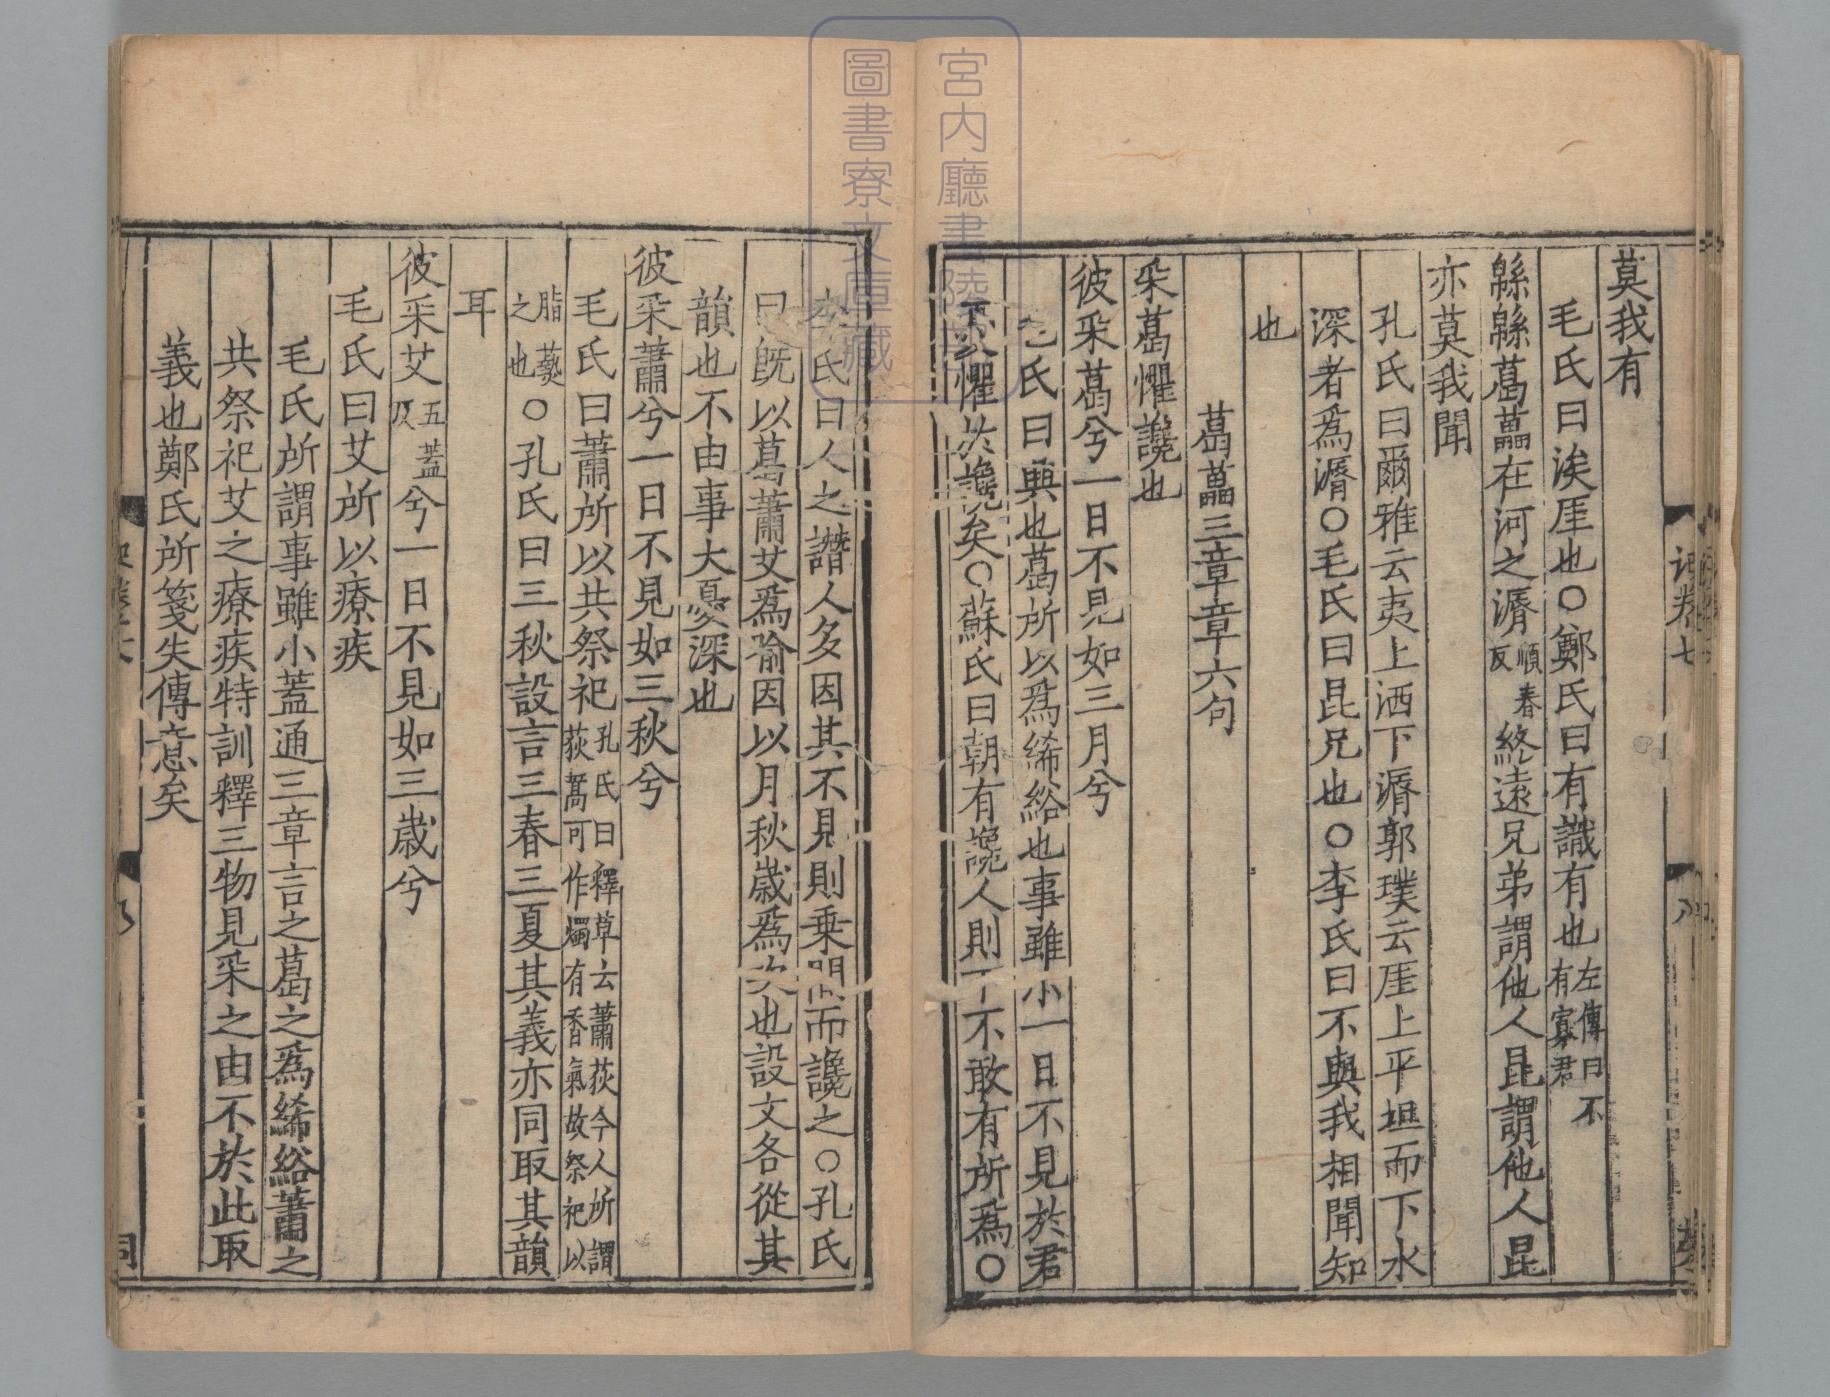 莫我有
毛氏曰涘厓也○鄭氏曰有識有也左傳曰不有寡君
緜緜葛藟在河之漘順春反終遠兄弟謂他人昆謂他人昆
亦莫我聞
孔氏曰爾雅云夷上洒下漘郭璞云厓上平坦而下水
深者爲漘○毛氏曰昆兄也○李氏曰不與我相聞知
也
葛藟三章章六句
采葛懼讒也
彼采葛兮一日不見如三月兮
毛氏曰興也葛所以爲絺綌也事雖小一日不見於君
憂懼於讒矣○蘇氏曰朝有讒人則下不敢有所爲○
李氏曰人之譖人多因其不見則乗間而讒之○孔氏
曰旣以葛蕭艾爲喻因以月秋歲爲次也設文各從其
韻也不由事大憂深也
彼采蕭兮一日不見如三秋兮
毛氏曰蕭所以共祭祀孔氏曰釋草云蕭荻今人所謂荻蒿可作燭有香氣故祭祀以
脂爇之也○孔氏曰三秋設言三春三夏其義亦同取其韻
耳
彼采艾五蓋反兮一日不見如三歲兮
毛氏曰艾所以療疾
毛氏所謂事雖小蓋通三章言之葛之爲絺綌蕭之
共祭祀艾之療疾特訓釋三物見采之由不於此取
義也鄭氏所箋失傳意矣
宮内廳書陵部
圖書寮文庫藏